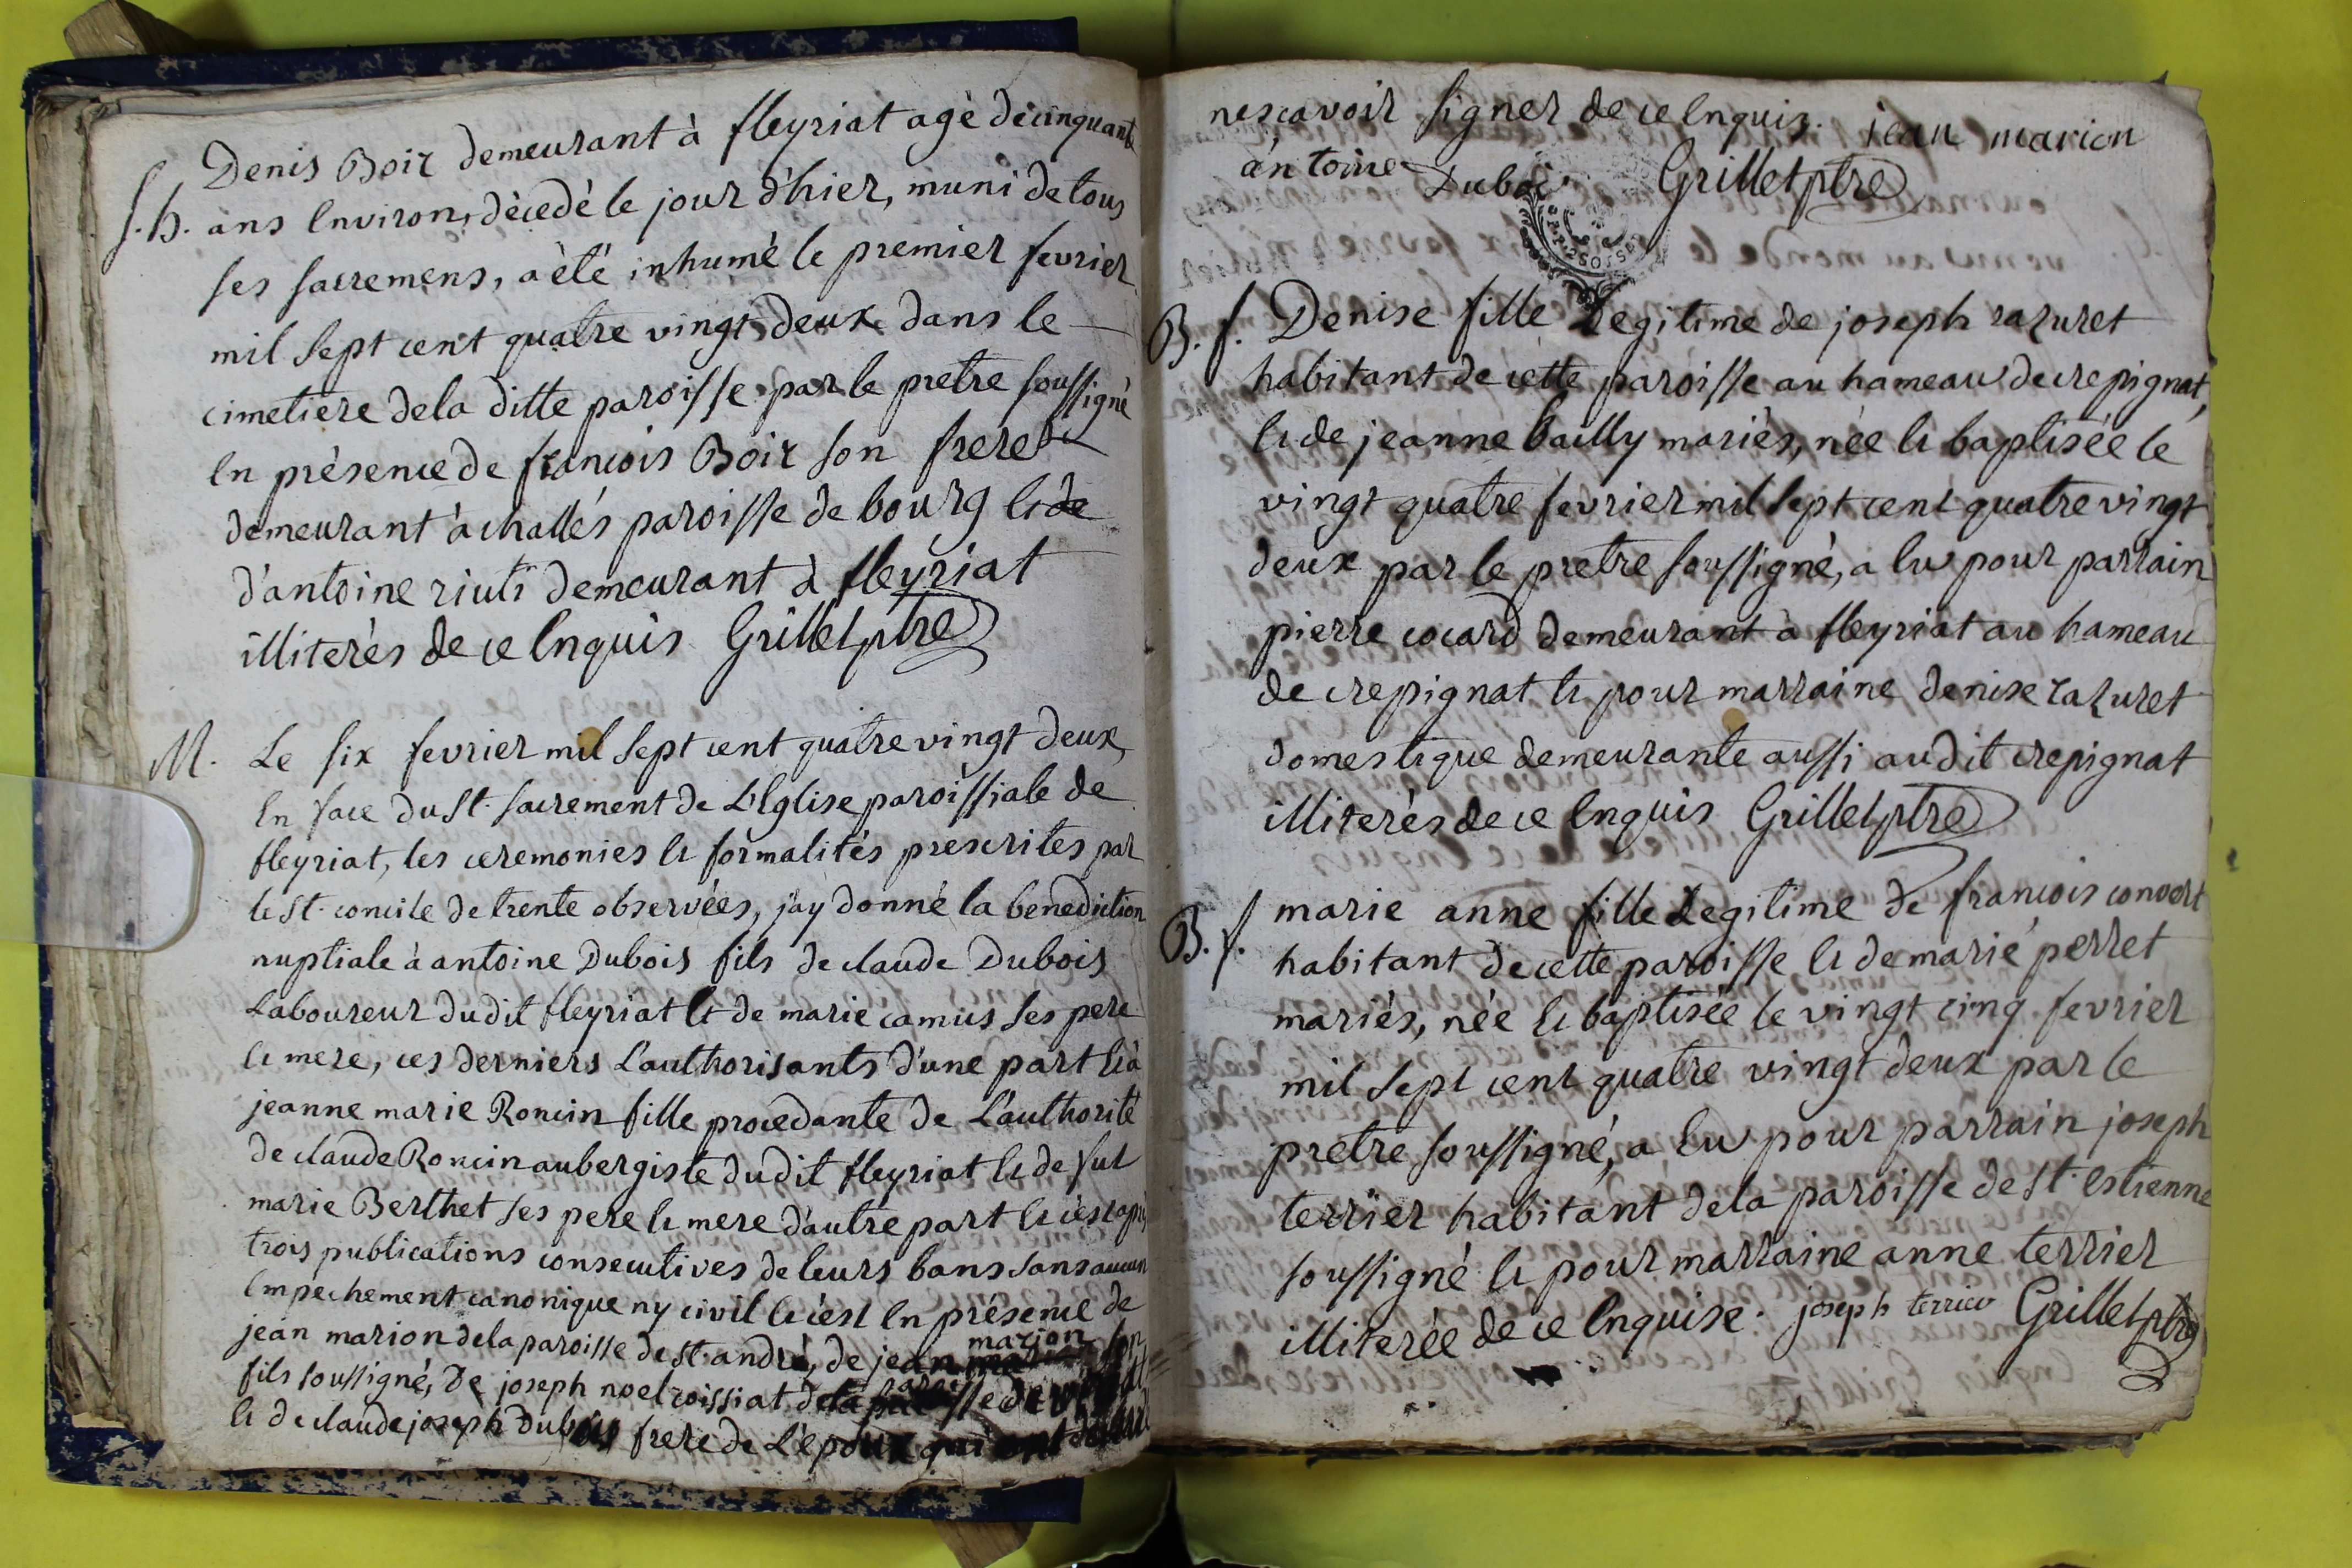 Denis Boir demeurant à fleyriat agé de cinquante
S. h. ans Environ, décedé le jour d'hier, muni de tous
ses sacremens, a été inhumé le premier fevrier
mil sept cent quatre vingt deux dans le
cimetiere de la ditte paroisse par le pretre soussigné
En présence de francois Boir son frere
demeurant à challes paroisse de bourg Et de
d'antoine riuti demeurant à fleyriat
illiterés de ce Enquis Grillet ptre
M. Le six fevrier mil sept cent quatre vingt deux,
En face du St. sacrement de L'Eglise paroissiale de
fleyriat, les ceremonies Et formalités prescrites par
le St. concile de trente observées, j'ay donné la benediction
nuptiale à antoine Dubois fils de claude Dubois
Laboureur dudit fleyriat Et de marie camus ses pere
Et mere, ces derniers L'authorisants d'une part Et à
jeanne marie Roncin fille procedante de L'authorité
de claude Roncin aubergiste dudit fleyriat Et de fut
marie Berthet ses pere Et mere d'autre part Et c'est après
trois publications consecutives de leurs bans sans aucun
Empechement canonique ny civil Et c'est En présence de
jean marion de la paroisse de st. andré, de jean marion son
fils soussigné, de joseph noel roissiat de la paroisse de
Et de claude joseph Dubois frere de L'époux qui ont
ne scavoir signer de ce Enquis. jean marion
antoine Duboi Grillet ptre
B. f. Denise fille Legitime de joseph razuret
habitant de cette paroisse au hameau de crepignat,
Et de jeanne bailly mariés, née Et baptisée le
vingt quatre fevrier mil sept cent quatre vingt
deux par le pretre soussigné, a Eu pour parrain
pierre cocard demeurant à fleyriat au hameau
de crepignat Et pour marraine denise razuret
domestique demeurante aussi audit crepignat
illiterés de ce Enquis Grillet ptre
B. f. marie anne fille Legitime de francois convert
habitant de cette paroisse Et de marie perret
mariés, née Et baptisée le vingt cinq fevrier
mil sept cent quatre vingt deux par le
pretre soussigné, a Eu pour parrain joseph
terrier habitant de la paroisse de St. Estienne
soussigné Et pour marraine anne terrier
illiterée de ce Enquise. joseph terrier Grillet ptre